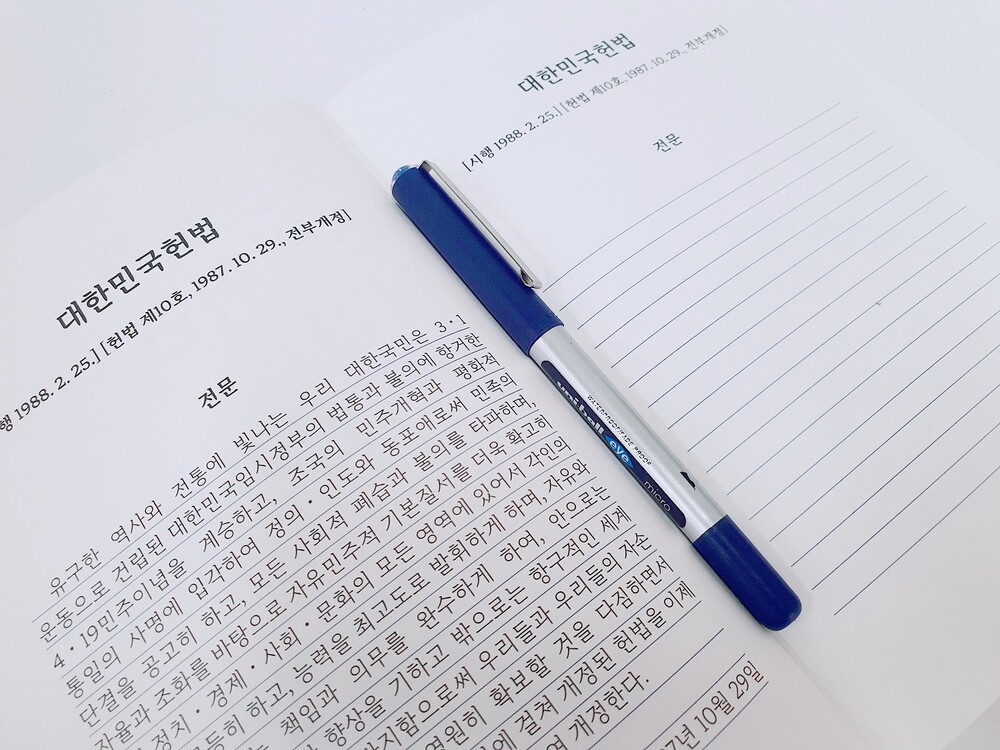 대한민국헌법
행 1988. 2. 25.] [헌법 제10호, 1987. 10. 29., 전부개정]
전문
유구한 역사와 전통에 빛나는 우리 대한국민은 3·1
운동으로 건립된 대한민국임시정부의 법통과 불의에 항거한
4·19민주이념을 계승하고, 조국의 민주개혁과 평화적
통일의 사명에 입각하여 정의·인도와 동포애로써 민족의
단결을 공고히 하고, 모든 사회적 폐습과 불의를 타파하며,
자율과 조화를 바탕으로 자유민주적 기본질서를 더욱 확고히
정치·경제·사회·문화의 모든 영역에 있어서 각인의
등히 하고, 능력을 최고도로 발휘하게 하며, 자유와
책임과 의무를 완수하게 하여, 안으로는
향상을 기하고 밖으로는 항구적인 세계
지함으로써 우리들과 우리들의 자손
영원히 확보할 것을 다짐하면서
에 걸쳐 개정된 헌법을 이제
여 개정한다.
7년 10월 29일
uni-ball eye micro
WATERPROOF/FADE PROOF
대한민국헌법
[시행 1988. 2. 25.] [헌법 제10호, 1987. 10. 29., 전부개정]
전문